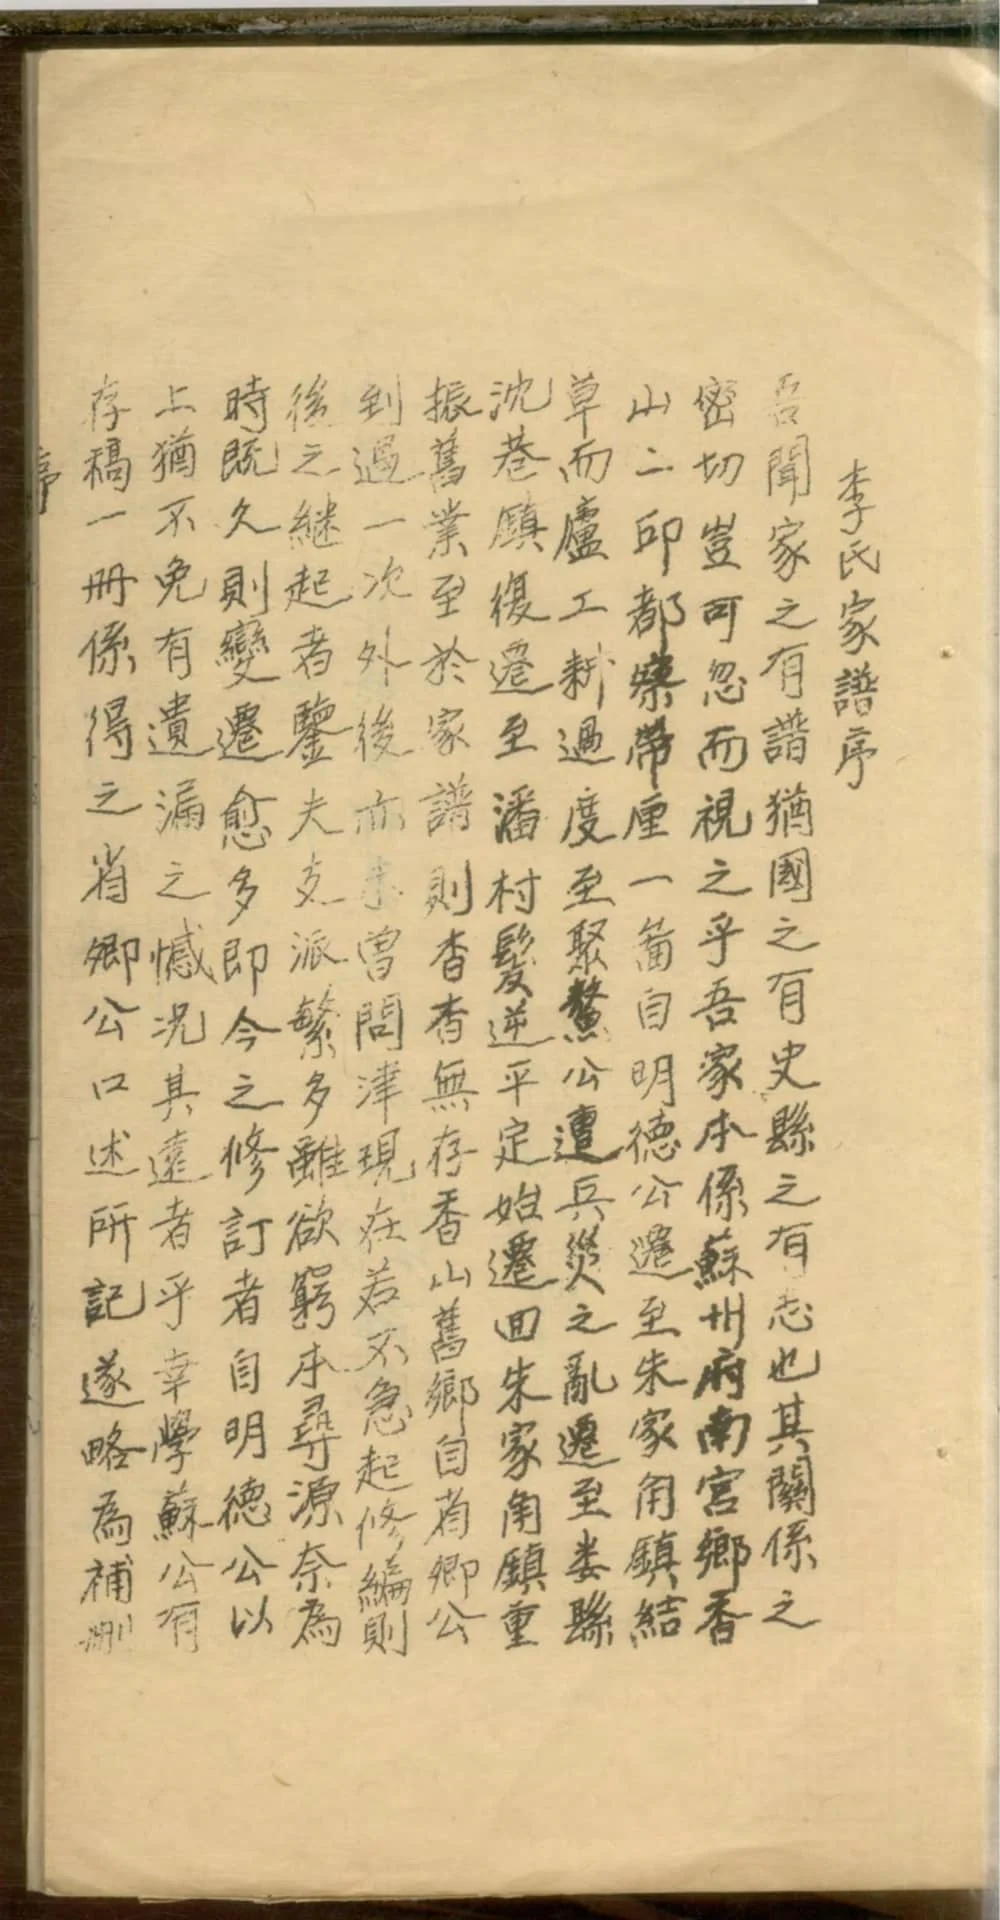 李氏家譜序
吾聞家之有譜猶國之有史縣之有志也其關係之
密切豈可忽而視之乎吾家本係蘇州府南宮鄉香
山二邱都帶廛一啚自明德公遷至朱家角鎮結
草而廬工耕過度至聚鰲公遭兵災之亂遷至娄縣
沈巷鎮復遷至潘村髮逆平定始遷回朱家角鎮重
振舊業至於家譜則杳杳無存香山舊鄉自省卿公
到過一次外後亦未曾問津現在若不急起修編則
後之継起者鑒夫支派繁多雖欲窮本尋源奈為
時既久則變遷愈多即今之修訂者自明德公以
上猶不免有遺漏之憾况其遠者乎幸學蘇公有
存稿一冊係得之省卿公口述所記遂略為補刪
序